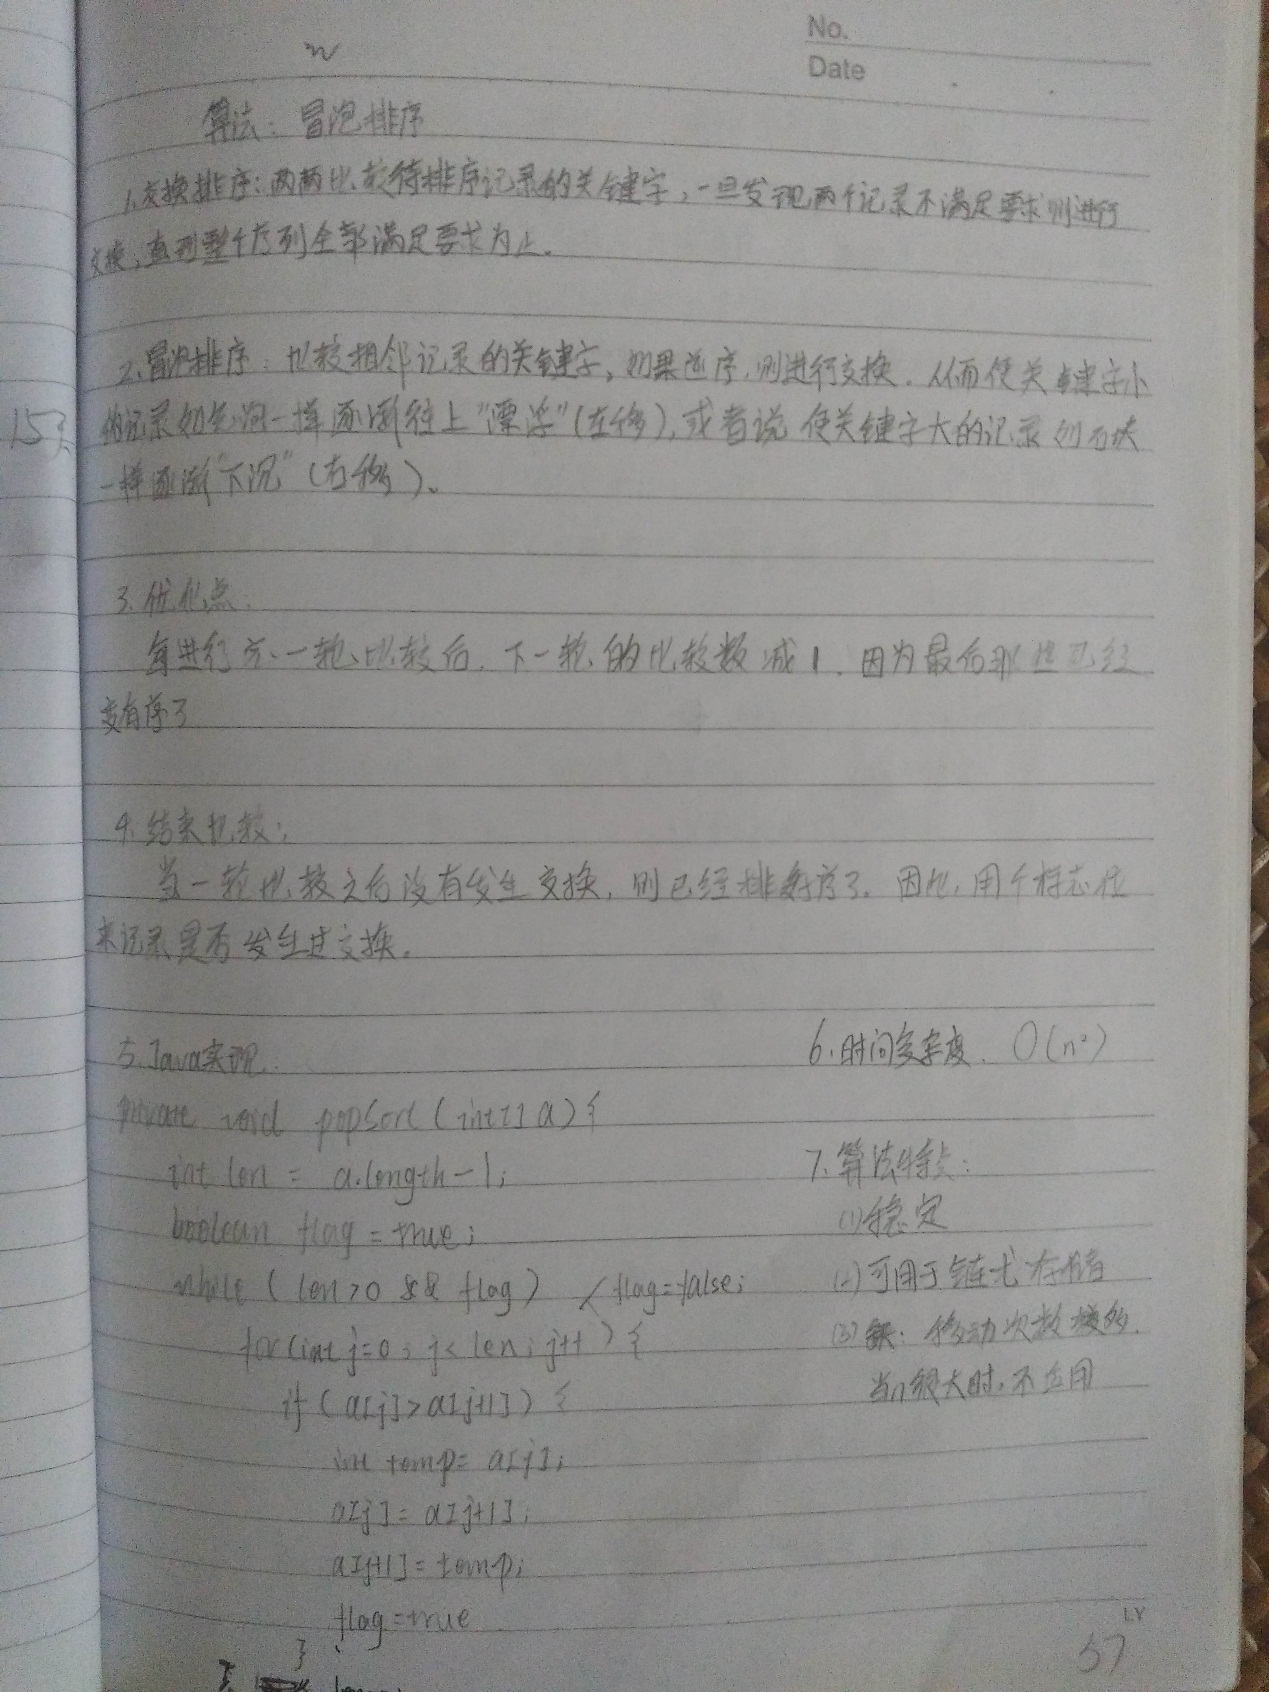 No.
Date
算法：冒泡排序
1.交换排序：两两比较待排序记录的关键字，一旦发现两个记录不满足要求则进行
交换，直到整个序列全部满足要求为止。
2.冒泡排序：比较相邻记录的关键字，如果逆序，则进行交换．从而使关键字小
的记录如气泡一样逐渐往上“漂浮”(左移)，或者说使关键字大的记录如石块
一样逐渐“下沉”(右移)。
153
3.优化点：
每进行完一轮比较后．下一轮的比较数减1．因为最后那些已经
变有序了
4.结束比较：
当一轮比较之后没有发生交换，则已经排好序了．因此，用个标志位
来记录是否发生过交换。
5.Java实现：
private void popSort(int[] a){
int len = a.length-1;
boolean flag = true;
while (len>0 && flag) { flag=false;
for(int j=0; j< len; j++){
if (a[j]>a[j+1]) {
int temp= a[j];
a[j]= a[j+1];
a[j+1]= temp;
flag=true
}
}
6.时间复杂度．O(n²)
7.算法特点：
(1)稳定
(2)可用于链式存储
(3)缺：移动次数较多．
当n很大时，不适用
LY
57